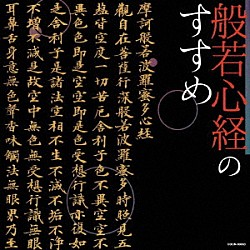 般若心経の
すすめ
摩訶般若波羅蜜多心経
觀自在菩薩行深般若波羅蜜多時照見五
蘊皆空度一切苦厄舍利子色不異空空不
異色色即是空空即是色受想行識亦復如
是舍利子是諸法空相不生不滅不垢不淨
不増不減是故空中無色無受想行識無眼
耳鼻舌身意無色聲香味觸法無眼界乃至